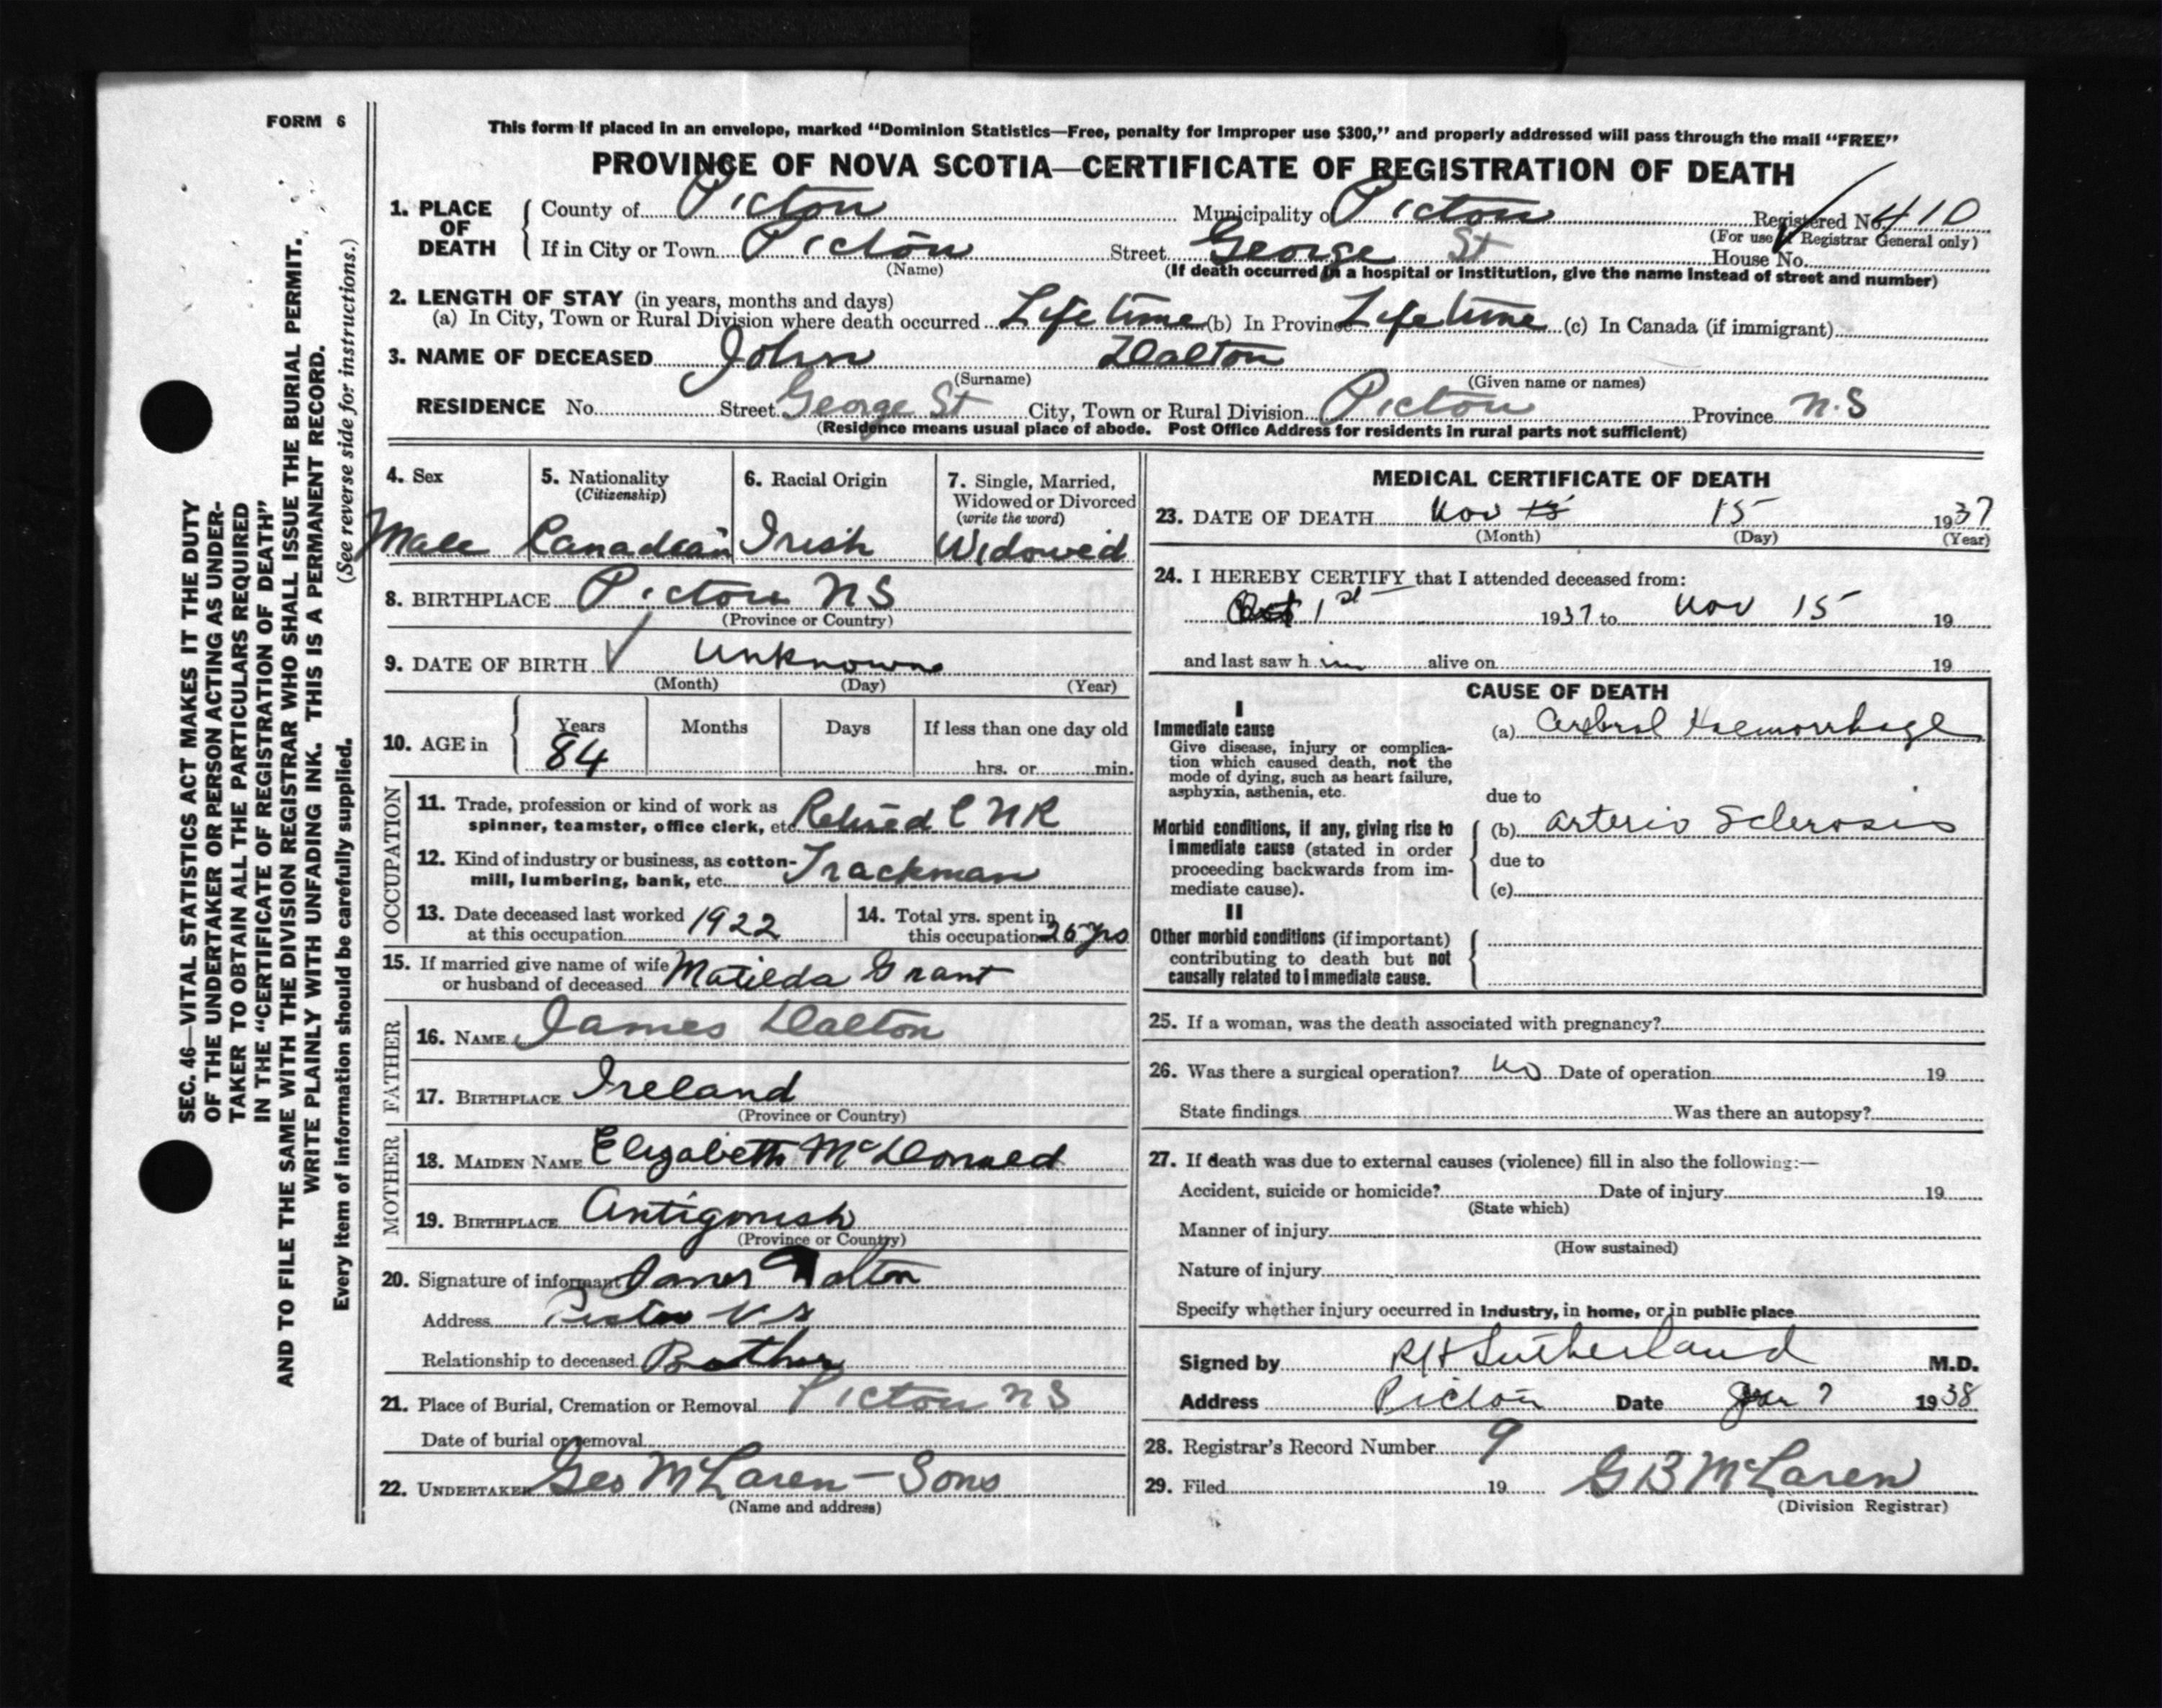 FORM 6
This form if placed in an envelope, marked "Dominion Statistics—Free, penalty for improper use $300," and properly addressed will pass through the mail "FREE"
PROVINCE OF NOVA SCOTIA—CERTIFICATE OF REGISTRATION OF DEATH
1. PLACE OF DEATH County of Pictou Municipality of Pictou Registered No. 410
(For use of Registrar General only)
If in City or Town Pictou Street George St House No.
(Name) (If death occurred in a hospital or institution, give the name instead of street and number)
2. LENGTH OF STAY (in years, months and days)
(a) In City, Town or Rural Division where death occurred Life time (b) In Province Life time (c) In Canada (if immigrant)
3. NAME OF DECEASED John Dalton
(Surname) (Given name or names)
RESIDENCE No. Street George St City, Town or Rural Division Pictou Province N.S
(Residence means usual place of abode. Post Office Address for residents in rural parts not sufficient)
SEC. 46—VITAL STATISTICS ACT MAKES IT THE DUTY
OF THE UNDERTAKER OR PERSON ACTING AS UNDER-
TAKER TO OBTAIN ALL THE PARTICULARS REQUIRED
IN THE "CERTIFICATE OF REGISTRATION OF DEATH"
AND TO FILE THE SAME WITH THE DIVISION REGISTRAR WHO SHALL ISSUE THE BURIAL PERMIT.
WRITE PLAINLY WITH UNFADING INK. THIS IS A PERMANENT RECORD.
Every item of information should be carefully supplied. (See reverse side for instructions.)
4. Sex Male
5. Nationality (Citizenship) Canadian
6. Racial Origin Irish
7. Single, Married, Widowed or Divorced (write the word) Widowed
8. BIRTHPLACE Pictou NS
(Province or Country)
9. DATE OF BIRTH Unknown
(Month) (Day) (Year)
10. AGE in Years 84 Months Days If less than one day old
hrs. or min.
OCCUPATION
11. Trade, profession or kind of work as
spinner, teamster, office clerk, etc. Retired CNR
12. Kind of industry or business, as cotton-
mill, lumbering, bank, etc. Trackman
13. Date deceased last worked
at this occupation 1922
14. Total yrs. spent in
this occupation 26 yrs
15. If married give name of wife
or husband of deceased Matilda Grant
FATHER
16. NAME James Dalton
17. BIRTHPLACE Ireland
(Province or Country)
MOTHER
18. MAIDEN NAME Elizabeth McDonald
19. BIRTHPLACE Antigonish
(Province or Country)
20. Signature of informant James Dalton
Address Pictou NS
Relationship to deceased Brother
21. Place of Burial, Cremation or Removal Pictou NS
Date of burial or removal
22. UNDERTAKER Geo McLaren - Sons
(Name and address)
MEDICAL CERTIFICATE OF DEATH
23. DATE OF DEATH Nov 15 15 1937
(Month) (Day) (Year)
24. I HEREBY CERTIFY that I attended deceased from:
Oct 1st 1937 to Nov 15 19
and last saw him alive on 19
CAUSE OF DEATH
I
Immediate cause (a) Cerebral Haemorrhage
Give disease, injury or complica-
tion which caused death, not the
mode of dying, such as heart failure,
asphyxia, asthenia, etc.
due to
Morbid conditions, if any, giving rise to (b) Arterio Sclerosis
immediate cause (stated in order
proceeding backwards from im- due to
mediate cause). (c)
II
Other morbid conditions (if important)
contributing to death but not
causally related to immediate cause.
25. If a woman, was the death associated with pregnancy?
26. Was there a surgical operation? No Date of operation 19
State findings Was there an autopsy?
27. If death was due to external causes (violence) fill in also the following:—
Accident, suicide or homicide? Date of injury 19
(State which)
Manner of injury
(How sustained)
Nature of injury
Specify whether injury occurred in industry, in home, or in public place
Signed by R H Sutherland M.D.
Address Pictou Date Jan 7 1938
28. Registrar's Record Number 9
29. Filed 19 G B McLaren
(Division Registrar)